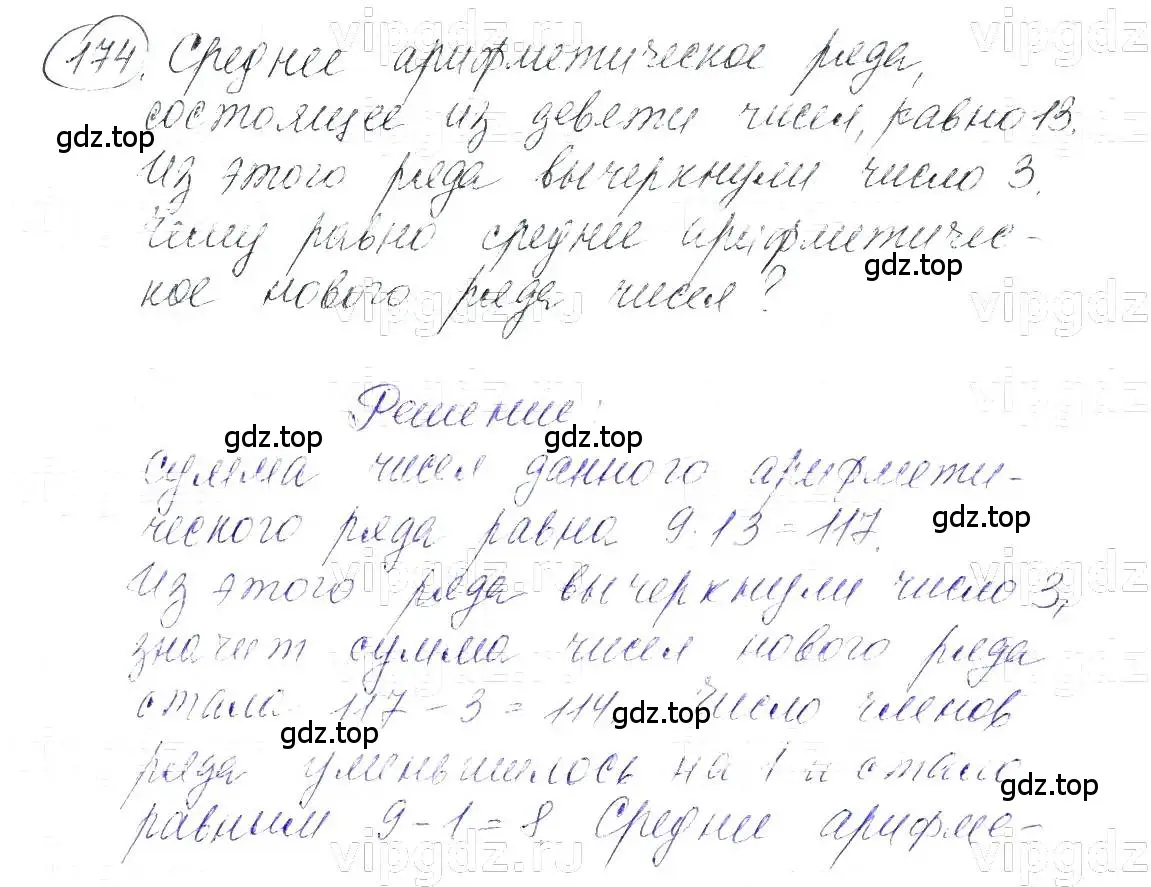 174. Среднее арифметическое ряда,
состоящее из девяти чисел, равно 13.
gdz.top
Из этого ряда вычеркнули число 3.
Чему равно среднее арифметичес-
gdz.top
кое нового ряда чисел?
Решение:
gdz.top gdz.top
сумма чисел данного арифмети-
ческого ряда равна 9·13=117.
gdz.top
Из этого ряда вычеркнули число 3,
значит сумма чисел нового ряда
стала 117-3=114. Число членов
gdz.top gdz.top
ряда уменьшилось на 1 и стало
gdz.top
равным 9-1=8. Среднее арифме-
vipgdz.ru vipgdz
vipgdz.ru vipgdz
vipgdz.ru vipgdz
vipgdz.ru vipgdz
vipgdz.ru vipgdz
vipgdz.ru vipgdz